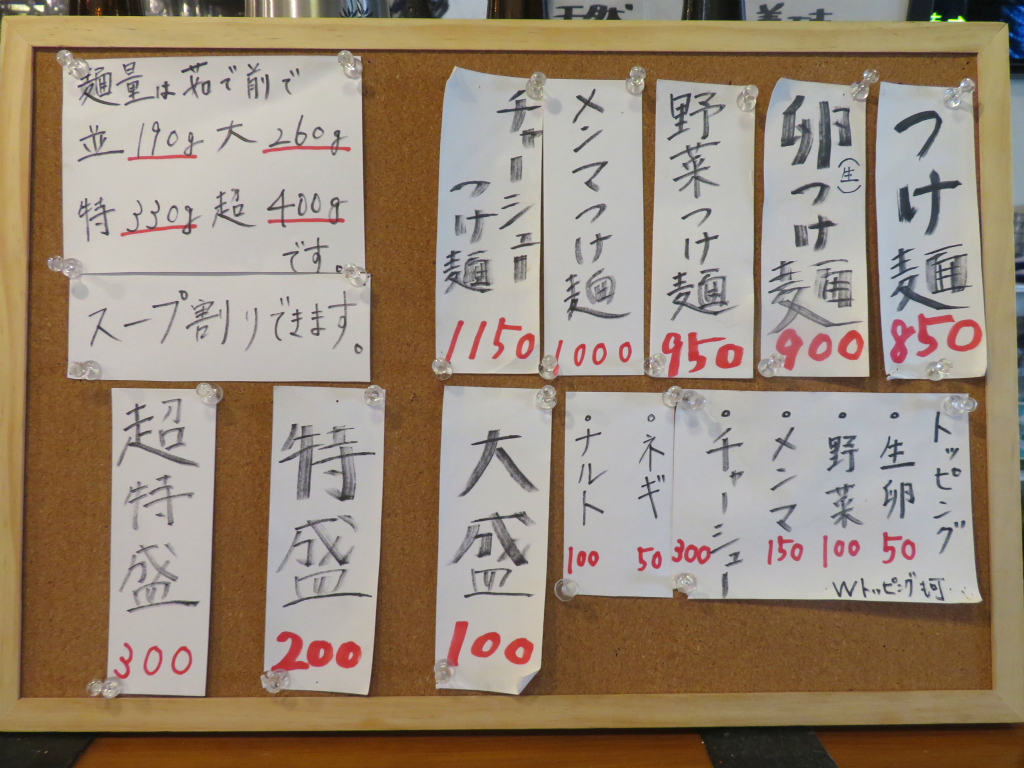 麺量は茹で前で
並190g 大 260g
特330g 超 400g
です。
スープ割りできます。
つけ麺
850
卵(生)つけ麺
900
野菜つけ麺
950
メンマつけ麺
1000
チャーシュー
つけ麺
1150
トッピング
・生卵
50
・野菜
100
・メンマ
150
・チャーシュー
300
Wトッピングも可
・ネギ
50
・ナルト
100
大盛
100
特盛
200
超特盛
300